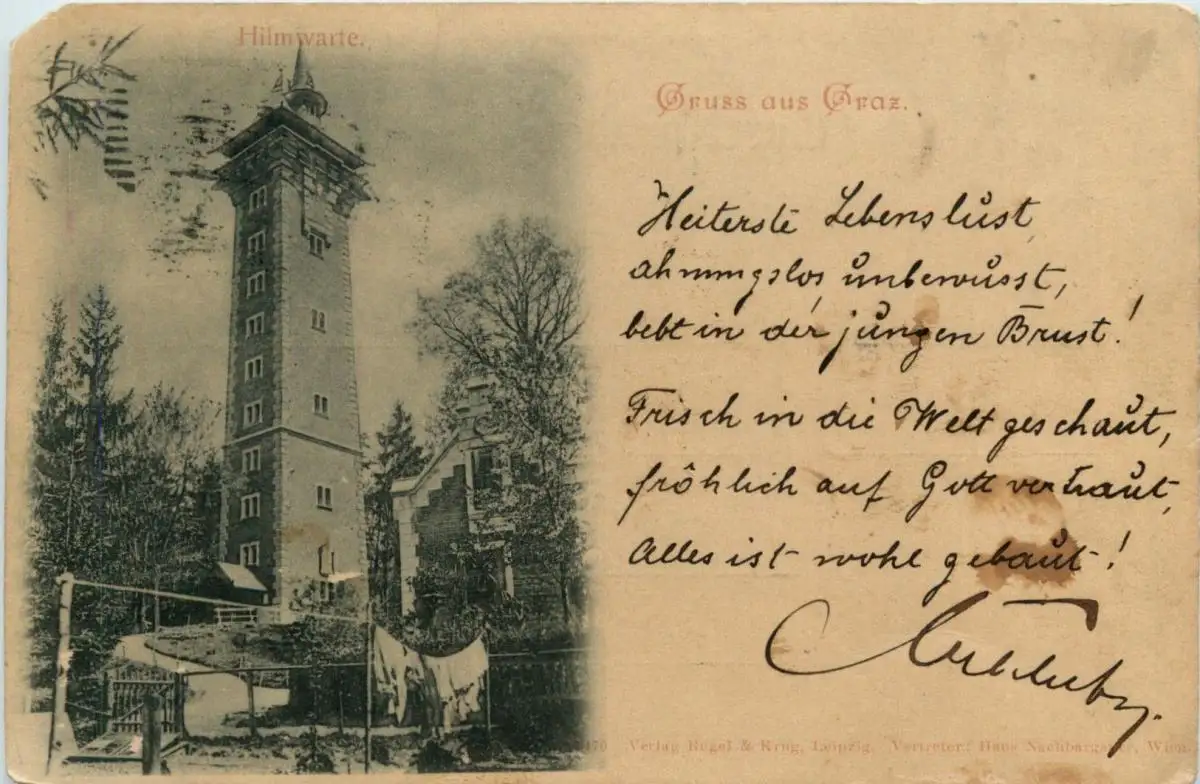 Hilmwarte.
Gruss aus Graz.
Heiterste Lebenslust
ahnungslos unbewusst,
bebt in der jungen Brust!
Frisch in die Welt geschaut,
fröhlich auf Gott vertraut,
Alles ist wohl gebaut!
Verlag Regel & Krug, Leipzig. Vertreter: Hans Nachbargauer, Wien.